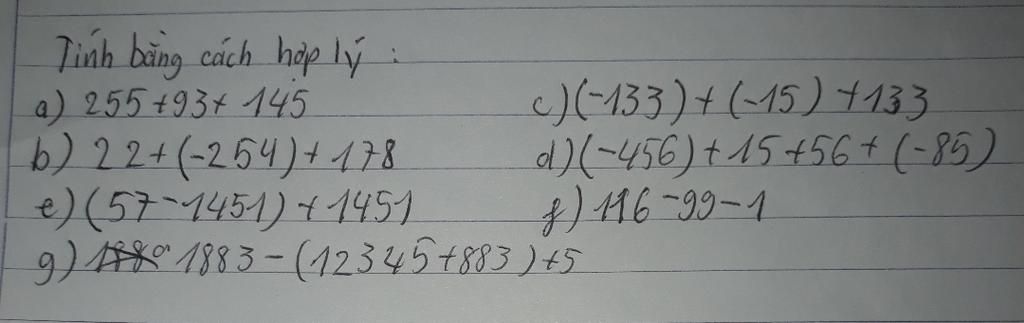 Tính bằng cách hợp lý :
a) 255+93+ 145 c) (-133) + (-15) +133
b) 22+(-254)+ 178 d) (-456) + 15 +56 + (-85)
e) (57-1451) + 1451 f) 116 -99 -1
g) 1883 - (12345+883) +5